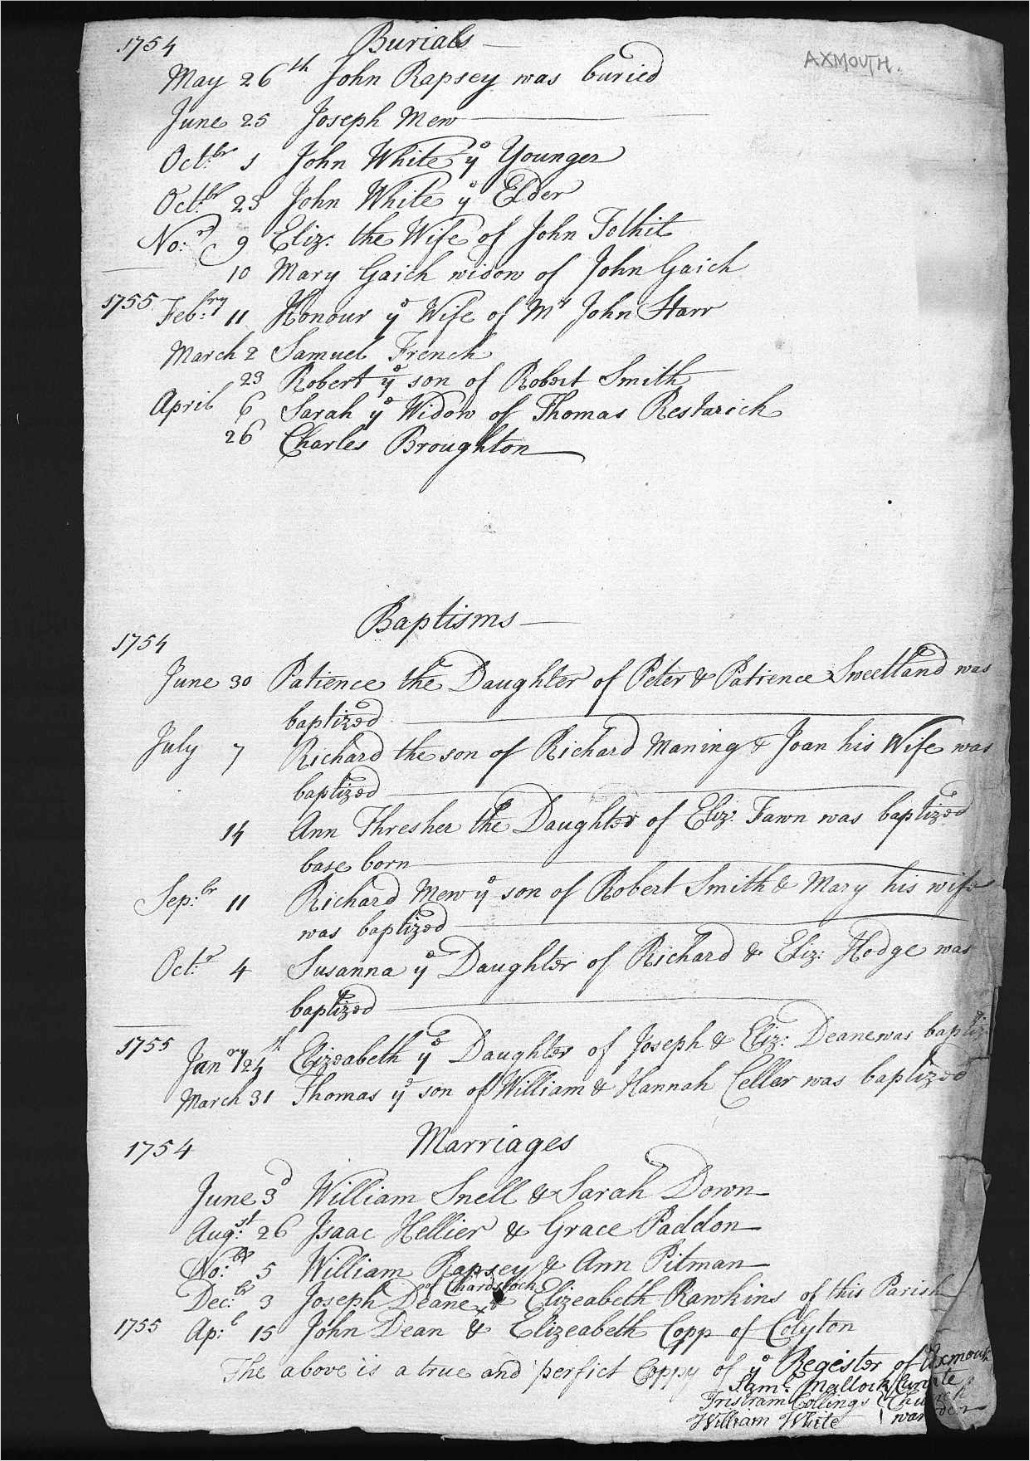 AXMOUTH.
1754 Burials
May 26th John Rapsey was buried
June 25 Joseph Mew
Oct:br 1 John White ye Younger
Oct:br 23 John White ye Elder
No: 9 Eliz: the Wife of John Tolhit
10 Mary Gaich widow of John Gaich
1755 Feb:ry 11 Honour ye Wife of Mr John Starr
March 2 Samuel French
23 Robert ye son of Robert Smith
April 6 Sarah ye Widow of Thomas Restarick
26 Charles Broughton
Baptisms
1754
June 30 Patience the Daughter of Peter & Patience Sweetland was
baptized
July 7 Richard the son of Richard Maning & Joan his Wife was
baptized
14 Ann Thresher the Daughter of Eliz: Fawn was baptized
base born
Sep:br 11 Richard Mew ye son of Robert Smith & Mary his wife
was baptized
Oct:r 4 Susanna ye Daughter of Richard & Eliz: Hodge was
baptized
1755
Janory 24th Elizeabeth ye Daughter of Joseph & Eliz: Deane was baptiz
March 31 Thomas ye son of William & Hannah Celler was baptized
1754 Marriages
June 3d William Snell & Sarah Down
Aug:st 26 Isaac Hellier & Grace Paddon
No:br 5 William Rapsey & Ann Pitman
of Chardstock
Dec:br 3 Joseph Deane & Elizeabeth Rawkins of this Parish
1755 Ap:l 15 John Dean & Elizeabeth Copp of Colyton
The above is a true and perfict Coppy of ye Register of Axmouth
Saml: Mallock Curate
Tristram Collings Church
William White warden